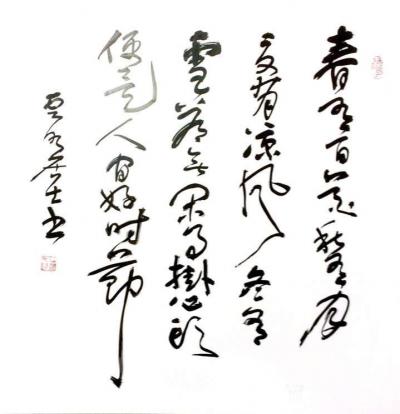 春有百花秋有月
夏有凉風冬有
雪若無閑事掛心頭
便是人間好時節
居士書